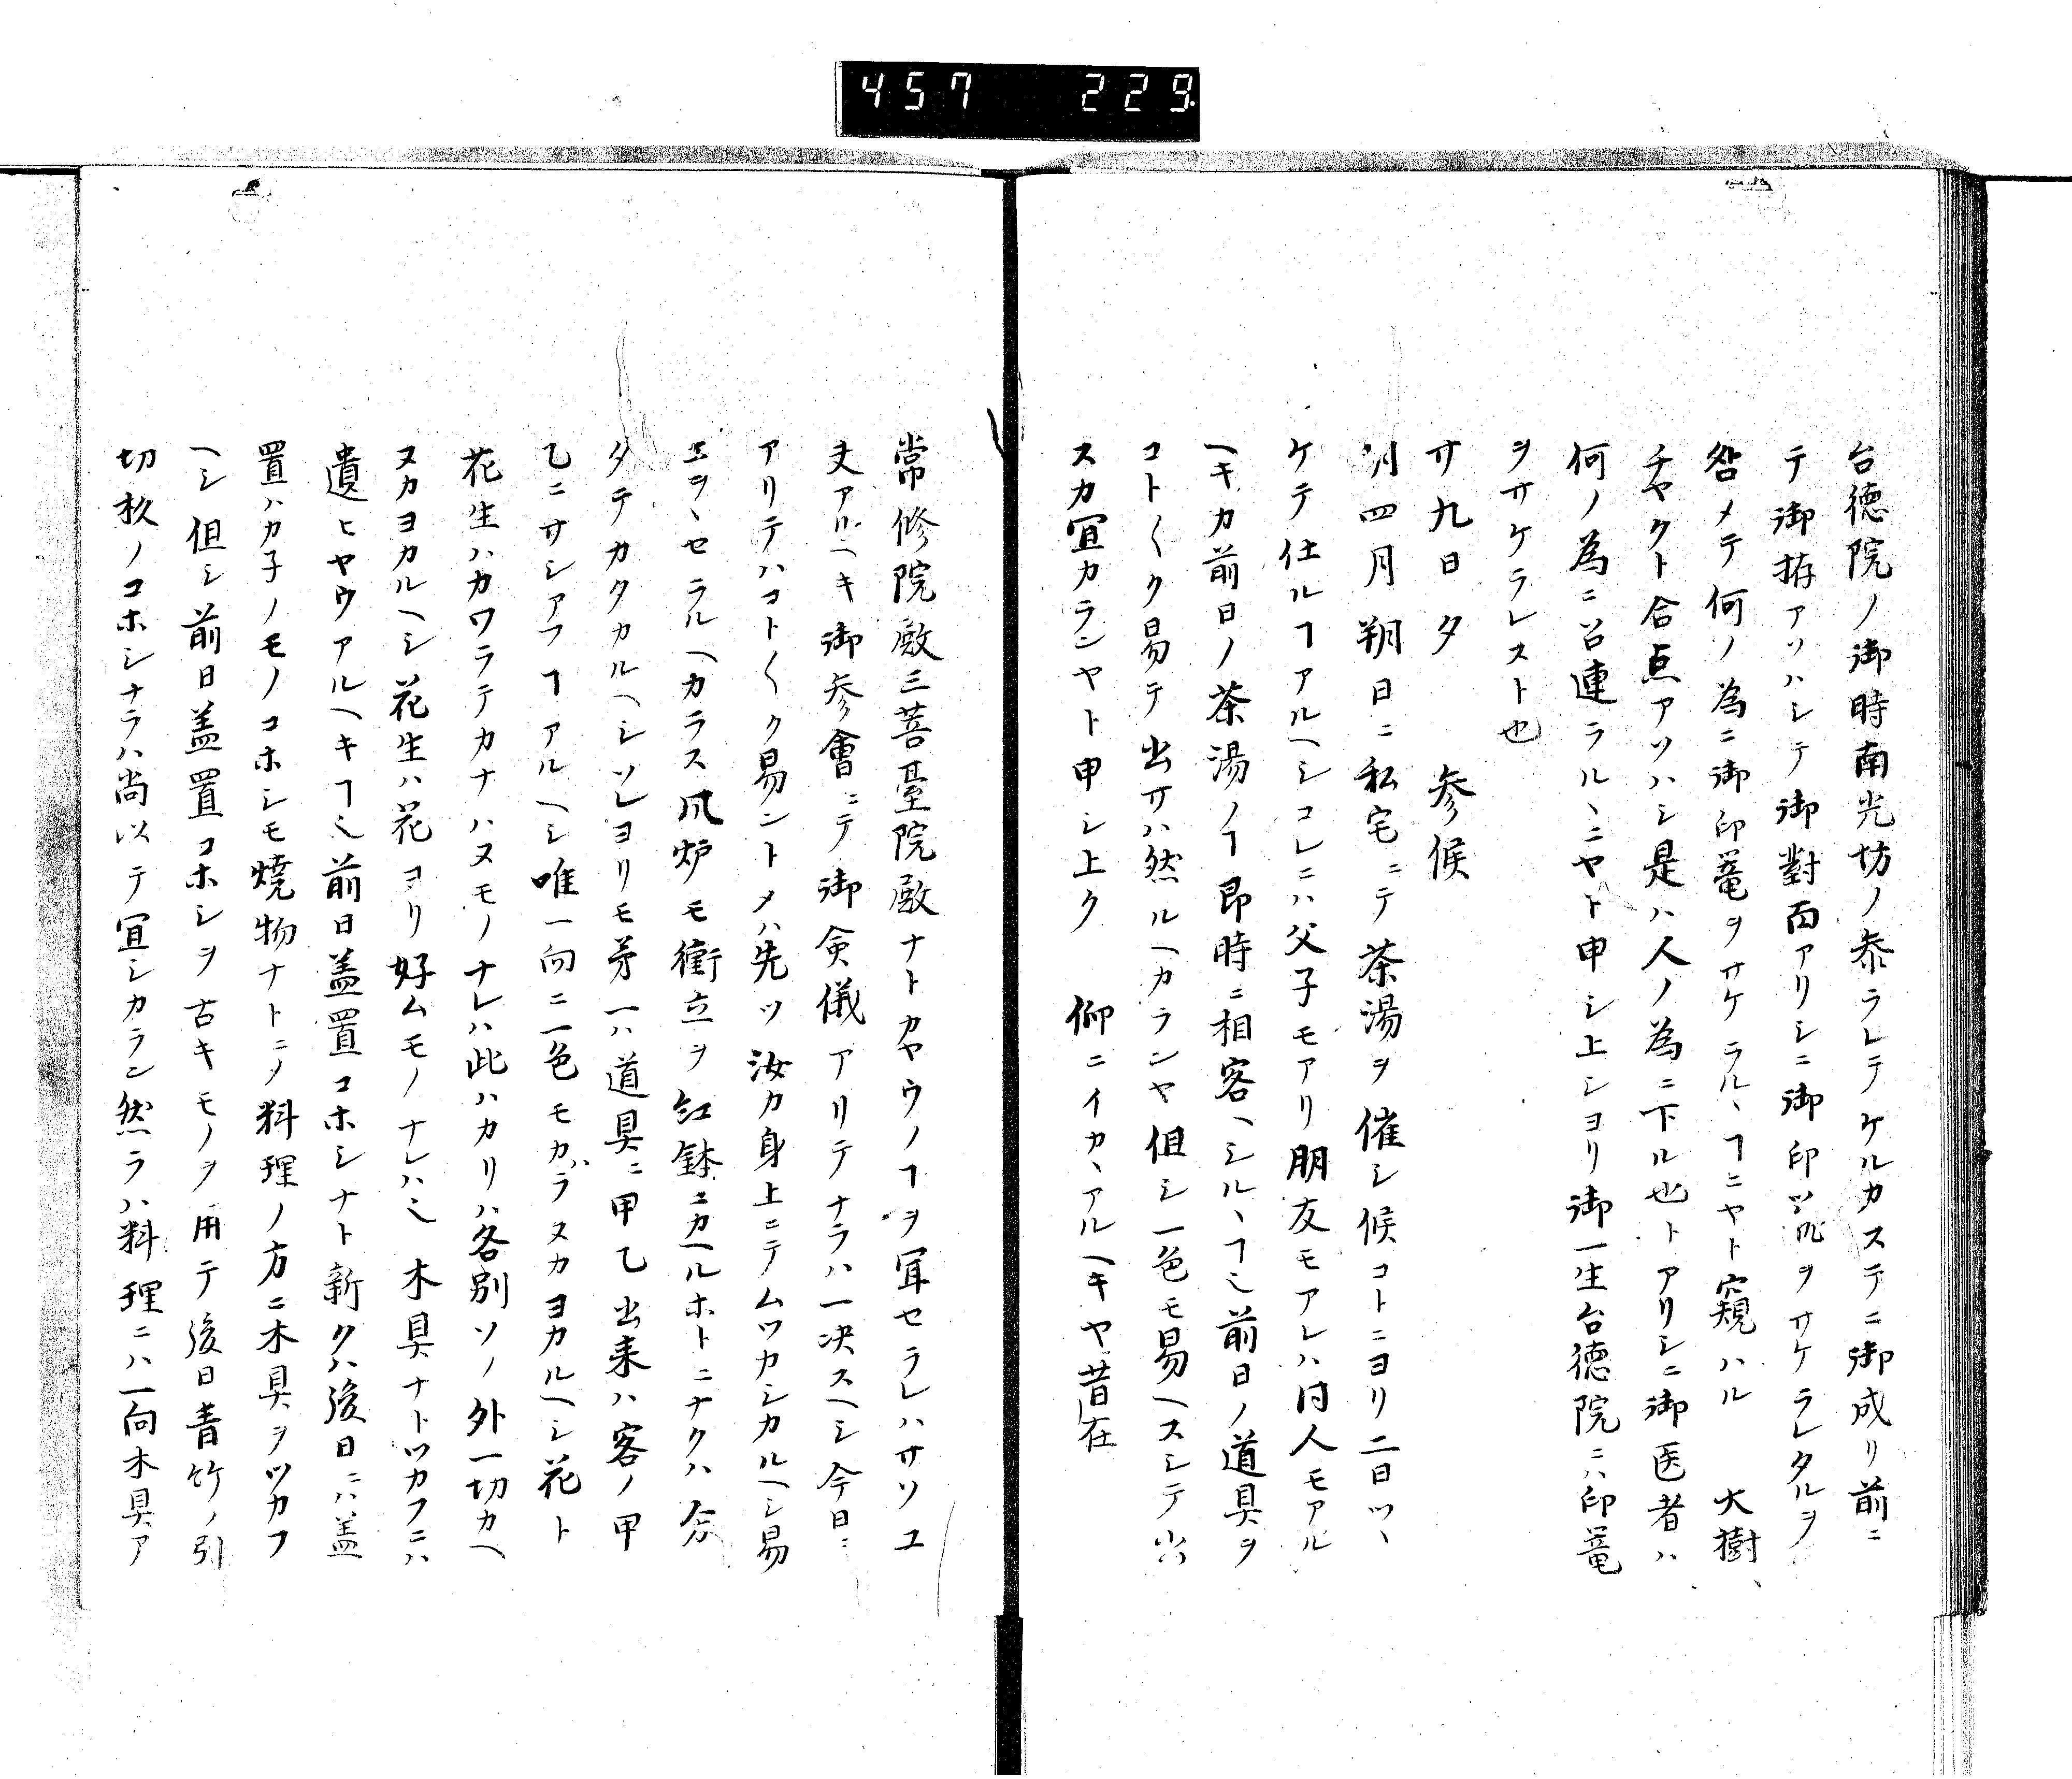 457 229
台徳院ノ御時南光坊ノ参ラレテケルカステニ御成リ前ニ
テ御拵アソハシテ御對面アリシニ御印籠ヲサケラレタルヲ
咎メテ何ノ為ニ御印篭ヲサケラル、ヿニヤト窺ハル 大樹、
チヤクト合点アソハシ是ハ人ノ為ニ下ル也トアリシニ御医者ハ
何ノ為ニ召連ラル、ニヤト申シ上シヨリ御一生台徳院ニハ印篭
ヲサケラレスト也
廿九日夕 参候
卯四月朔日ニ私宅ニテ茶湯ヲ催シ候コトニヨリ二日ツ、
ケテ仕ルヿアルヘシコレニハ父子モアリ朋友モアレハ同人モアル
ヘキカ前日ノ茶湯ノヿ即時ニ相客ヘシル、ヿ也前日ノ道具ヲ
コト〱ク易テ出サハ然ルヘカランヤ但シ一色モ易ヘスシテ出
スカ冝カランヤト申シ上ク 仰ニイカ、アルヘキヤ昔在
常修院殿三菩臺院殿ナトカヤウノヿヲ冝セラレハサソユ
丈アルヘキ御参會ニテ御僉儀アリテナラハ一决スヘシ今日ニ
アリテハコト〱ク易ントメハ先ツ汝カ身上ニテムツカシカルヘシ易
エラ、セラルヘカラス風炉モ衝立ヲ紅鉢ニカヘルホトニナクハ分
タテカタカルヘシソレヨリモ茅一ハ道具ニ甲乙出来ハ客ノ甲
乙ニサシアフヿアルヘシ唯一向ニ一色モカヘラヌカヨカルヘシ花ト
花生ハカワラテカナハヌモノナレハ此ハカリハ各別ソノ外一切カヘ
ヌカヨカルヘシ花生ハ花ヨリ好ムモノナレハ也木具ナトツカフニハ
遺ヒヤウアルヘキヿ也前日盖置コホシナト新クハ後日ニハ盖
置ハカ子ノモノコホシモ焼物ナトニメ料理ノ方ニ木具ヲツカフ
ヘシ但シ前日盖置コホシヲ古キモノヲ用テ後日青竹ノ引
切杉ノコホシナラハ尚以テ冝シカラン然ラハ料理ニハ一向木具ア